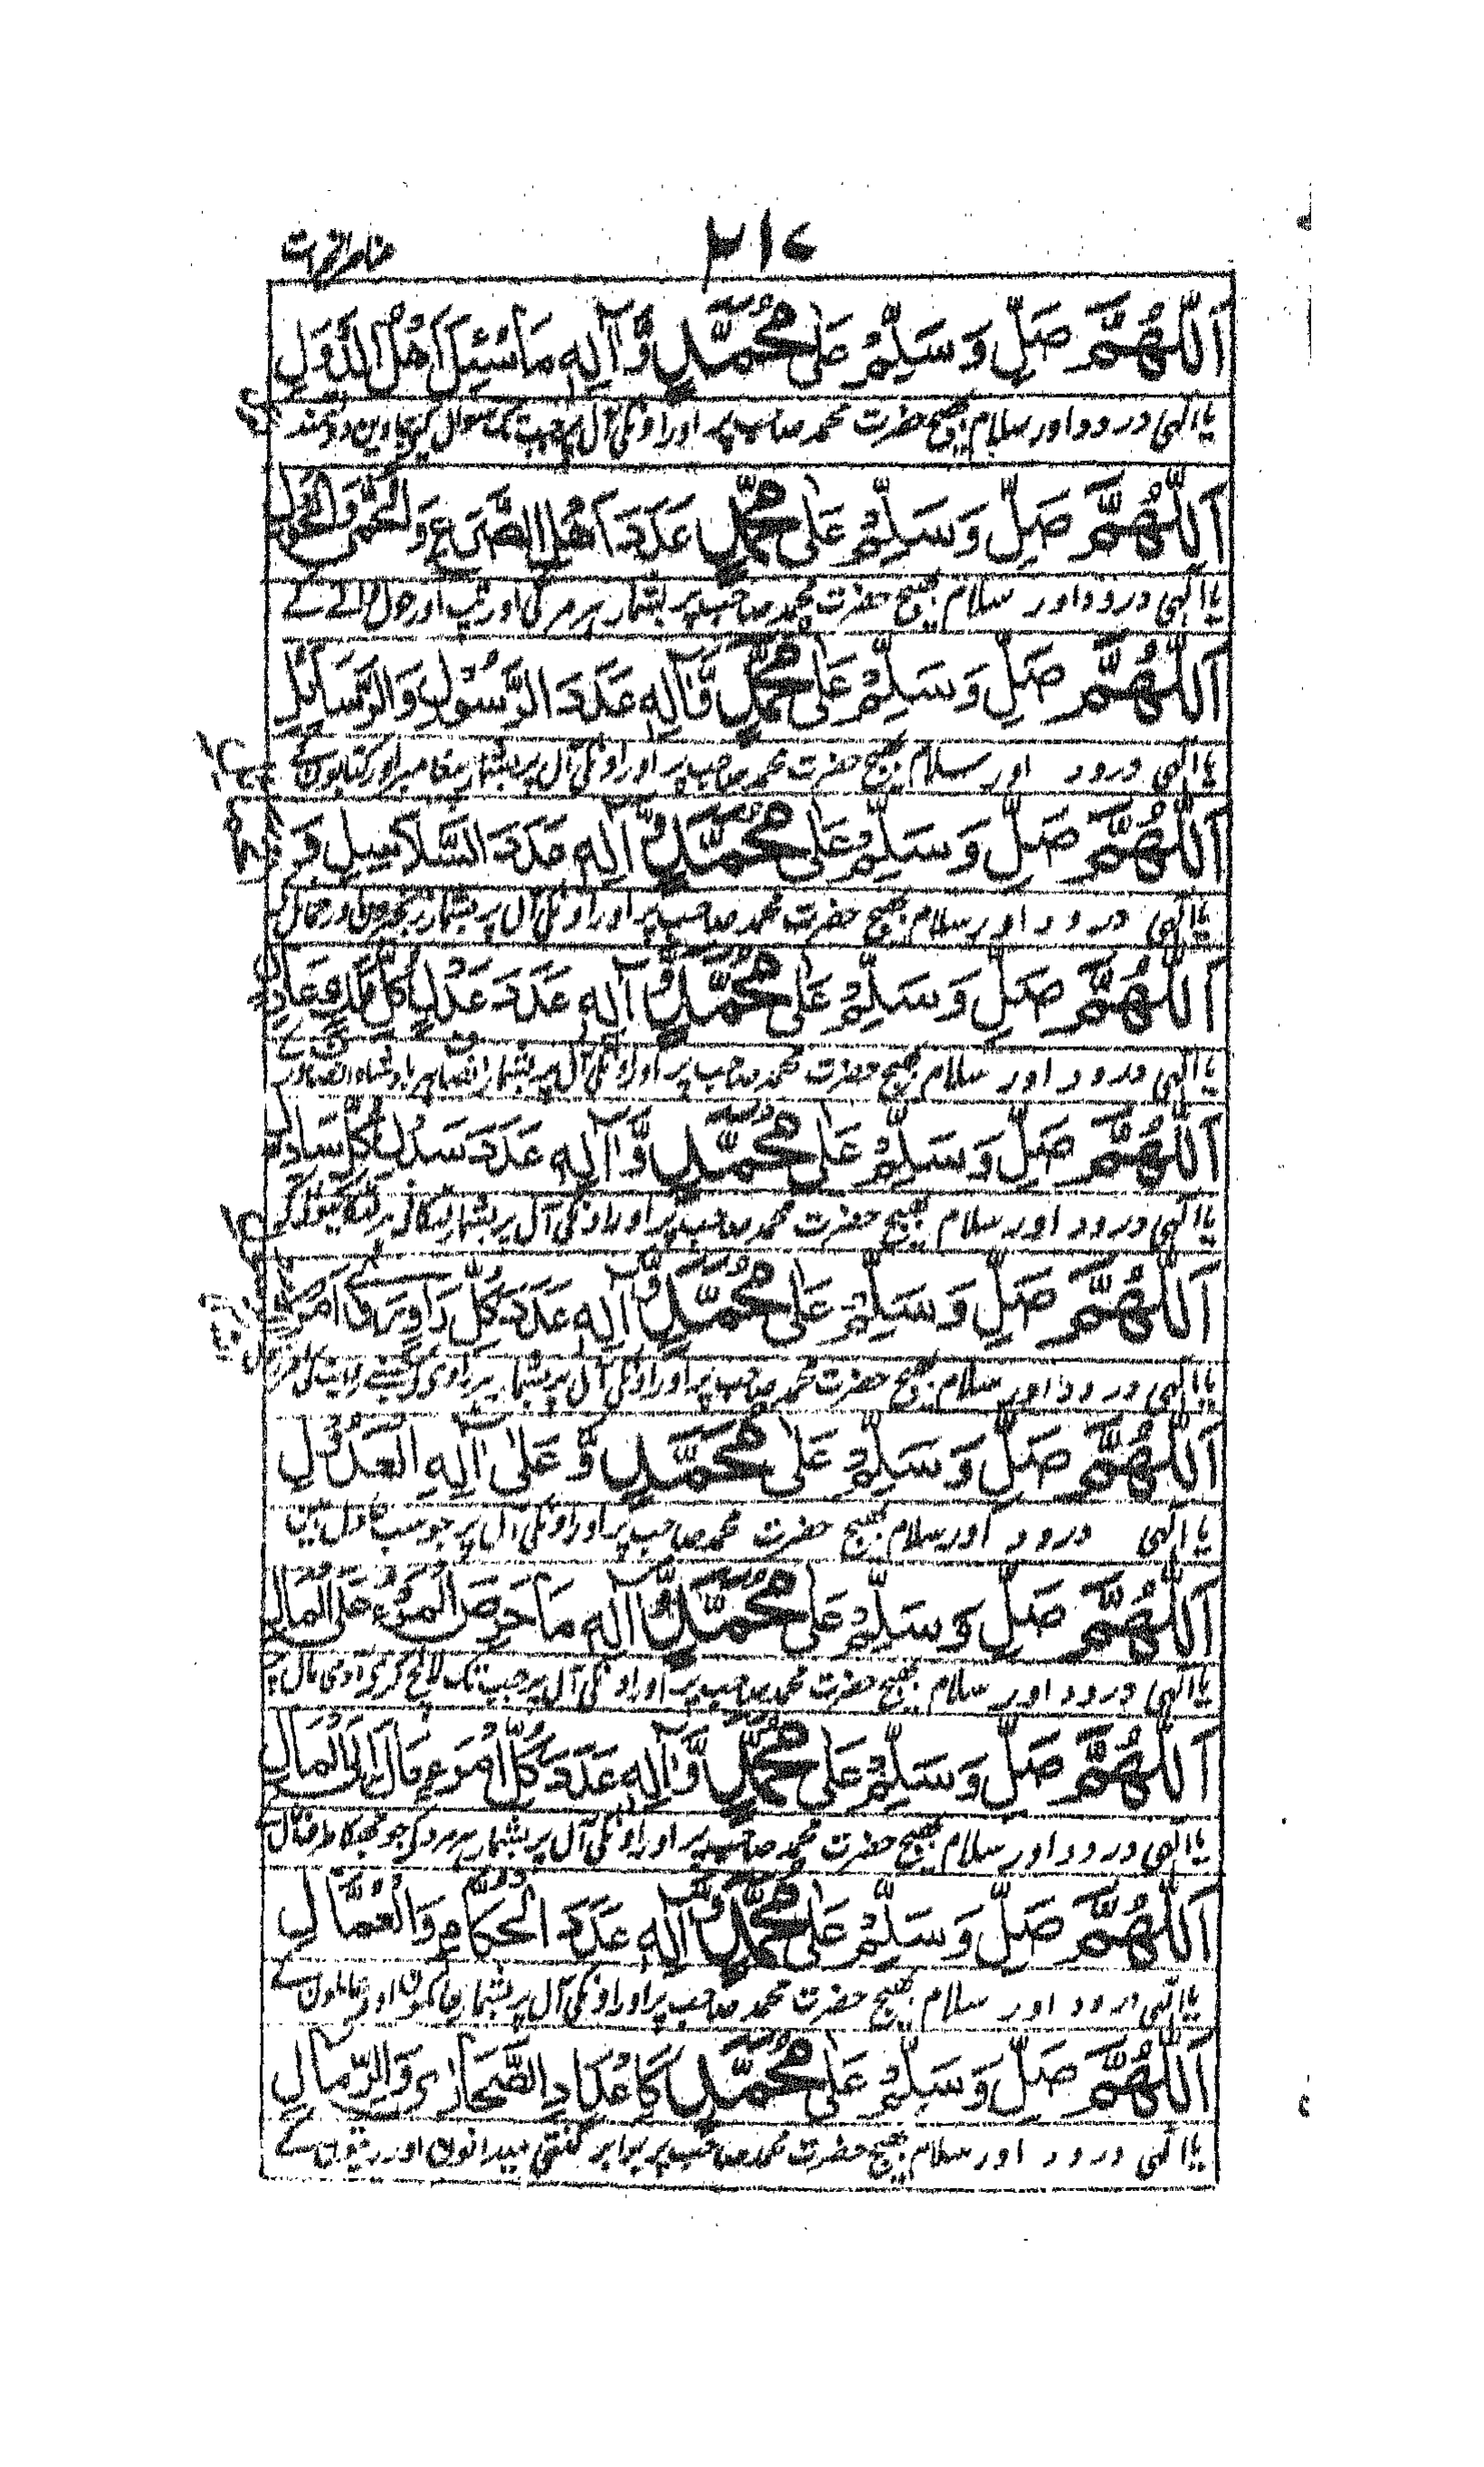 ۲۱۷
اَللّٰهُمَّ صَلِّ وَسَلِّمْ عَلٰى مُحَمَّدٍ وَّاٰلِهٖ مَا سُئِلَ اَهْلُ الدُّوَلِ
یا الٰہی درود اور سلام بھیج حضرت محمد صاحب پر اور اونکی آل پر جب تک سوال کیے جاویں دولتمند
اَللّٰهُمَّ صَلِّ وَسَلِّمْ عَلٰى مُحَمَّدٍ عَدَدَ اَهْلِ الصَّرَعِ وَالْحُمّٰى وَالْحَوَلِ
یا الٰہی درود اور سلام بھیج حضرت محمد صاحب پر بشمار ہر مرگی اور تپ اور حول والے کے
اَللّٰهُمَّ صَلِّ وَسَلِّمْ عَلٰى مُحَمَّدٍ وَّاٰلِهٖ عَدَدَ الرَّسُوْلِ وَالرَّسَائِلِ
یا الٰہی درود اور سلام بھیج حضرت محمد صاحب پر اور اونکی آل پر بشمار پیغامبر اور کتابوں کے
اَللّٰهُمَّ صَلِّ وَسَلِّمْ عَلٰى مُحَمَّدٍ وَّاٰلِهٖ عَدَدَ السَّلَاسِلِ
یا الٰہی درود اور سلام بھیج حضرت محمد صاحب پر اور اونکی آل پر بشمار
اَللّٰهُمَّ صَلِّ وَسَلِّمْ عَلٰى مُحَمَّدٍ وَّاٰلِهٖ عَدَدَ عَدْلِ كُلِّ
یا الٰہی درود اور سلام بھیج حضرت محمد صاحب پر اور اونکی آل پر بشمار انصاف ہر بادشاہ
اَللّٰهُمَّ صَلِّ وَسَلِّمْ عَلٰى مُحَمَّدٍ وَّاٰلِهٖ عَدَدَ سَدْلِ كُلِّ سَادِلٍ
یا الٰہی درود اور سلام بھیج حضرت محمد صاحب پر اور اونکی آل پر بشمار
اَللّٰهُمَّ صَلِّ وَسَلِّمْ عَلٰى مُحَمَّدٍ وَّاٰلِهٖ عَدَدَ كُلِّ رَاوٍ
یا الٰہی درود اور سلام بھیج حضرت محمد صاحب پر اور اونکی آل پر بشمار ہر راوی کے
اَللّٰهُمَّ صَلِّ وَسَلِّمْ عَلٰى مُحَمَّدٍ وَّ عَلٰى اٰلِهِ الْعَدُوْلِ
یا الٰہی درود اور سلام بھیج حضرت محمد صاحب پر اور اونکی آل پر جو سب عادل ہیں
اَللّٰهُمَّ صَلِّ وَسَلِّمْ عَلٰى مُحَمَّدٍ وَّاٰلِهٖ مَا حَرَصَ الْمَرْءُ عَلَى الْمَالِ
یا الٰہی درود اور سلام بھیج حضرت محمد صاحب پر اور اونکی آل پر جب تک لالچ کرے آدمی مال پر
اَللّٰهُمَّ صَلِّ وَسَلِّمْ عَلٰى مُحَمَّدٍ وَّاٰلِهٖ عَدَدَ كُلِّ امْرَءٍ مَالَ اِلَى الْمَالِ
یا الٰہی درود اور سلام بھیج حضرت محمد صاحب پر اور اونکی آل پر بشمار ہر مرد کی جو جھکا طرف مال کے
اَللّٰهُمَّ صَلِّ وَسَلِّمْ عَلٰى مُحَمَّدٍ وَّاٰلِهٖ عَدَدَ الْحُكَّامِ وَالْعُمَّالِ
یا الٰہی درود اور سلام بھیج حضرت محمد صاحب پر اور اونکی آل پر بشمار حاکموں اور عاملوں کے
اَللّٰهُمَّ صَلِّ وَسَلِّمْ عَلٰى مُحَمَّدٍ كَاَعْدَادِ الصَّحَارٰى وَالرِّمَالِ
یا الٰہی درود اور سلام بھیج حضرت محمد صاحب پر برابر گنتی میدانوں اور ریتوں کے